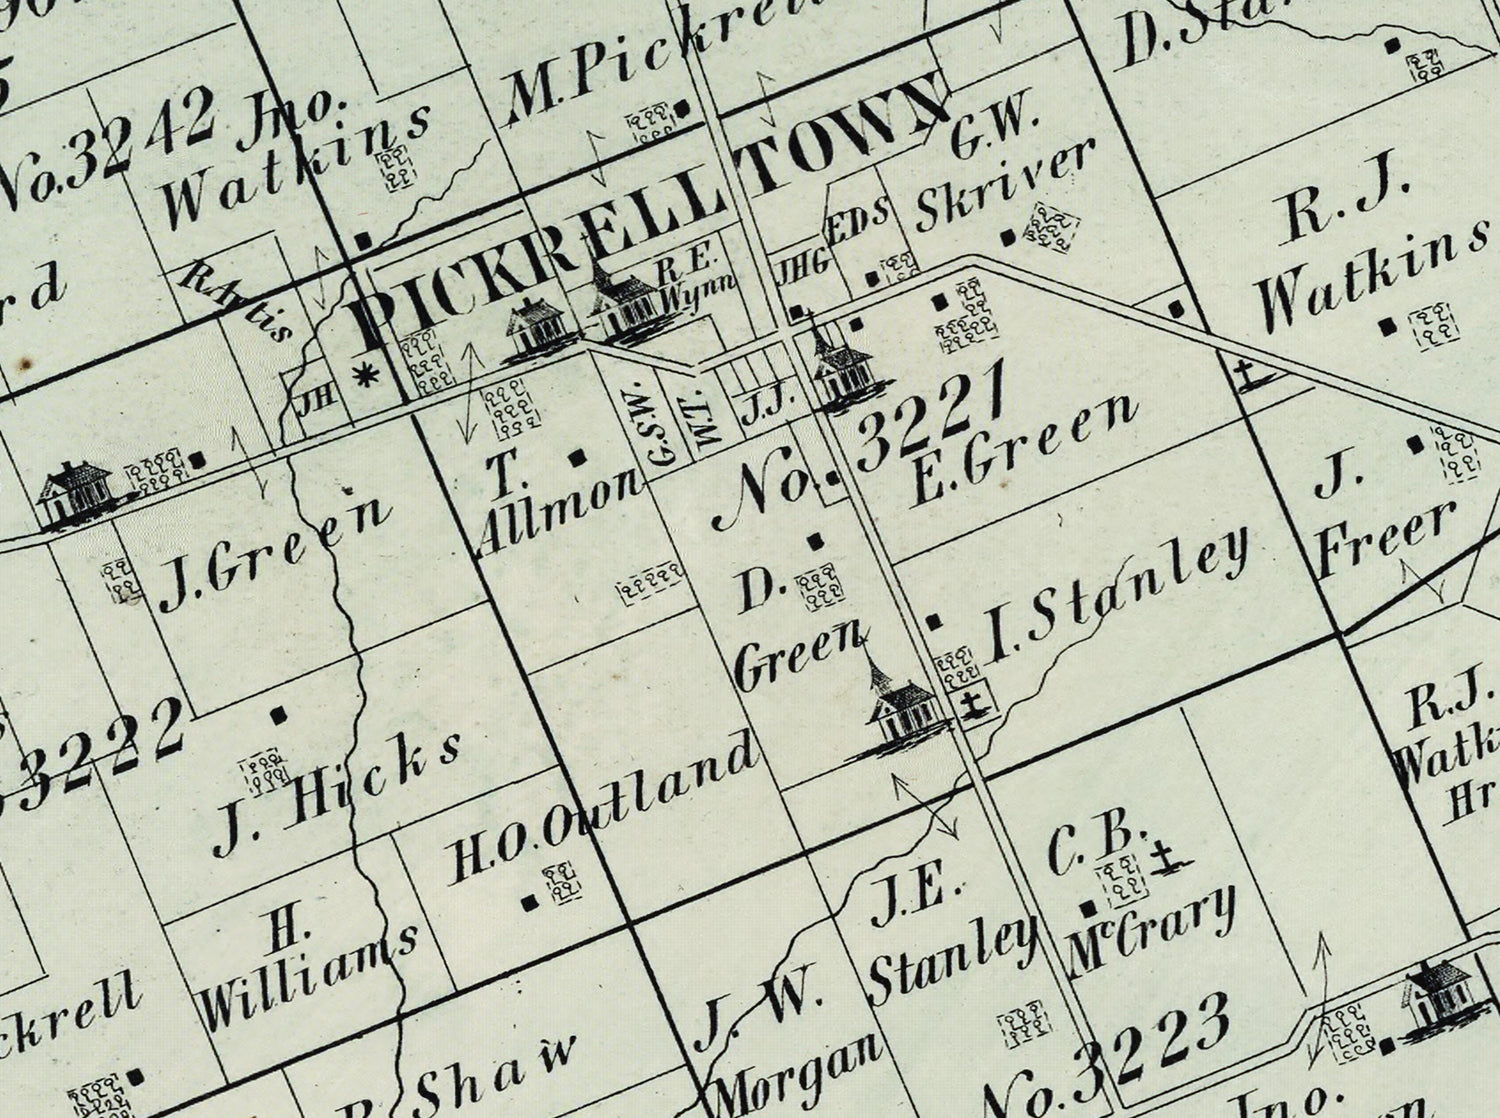 M. Pickrell
D. Sta
No. 3242
Jno.
Watkins
PICKRELLTOWN
G.W.
Skriver
EDS
JHG
R. E.
Wynn
R. J.
Watkins
rd
R Artis
JH
G.S.W.
W.T.
J.J.
No. 3221
E. Green
T.
Allmon
J. Green
J.
Freer
D.
Green
I. Stanley
3222
J. Hicks
H. O. Outland
R.J.
Watk
Hr
C. B.
McCrary
J. E.
Stanley
H.
Williams
ckrell
J. W.
Morgan
Shaw
No. 3223
Jno.